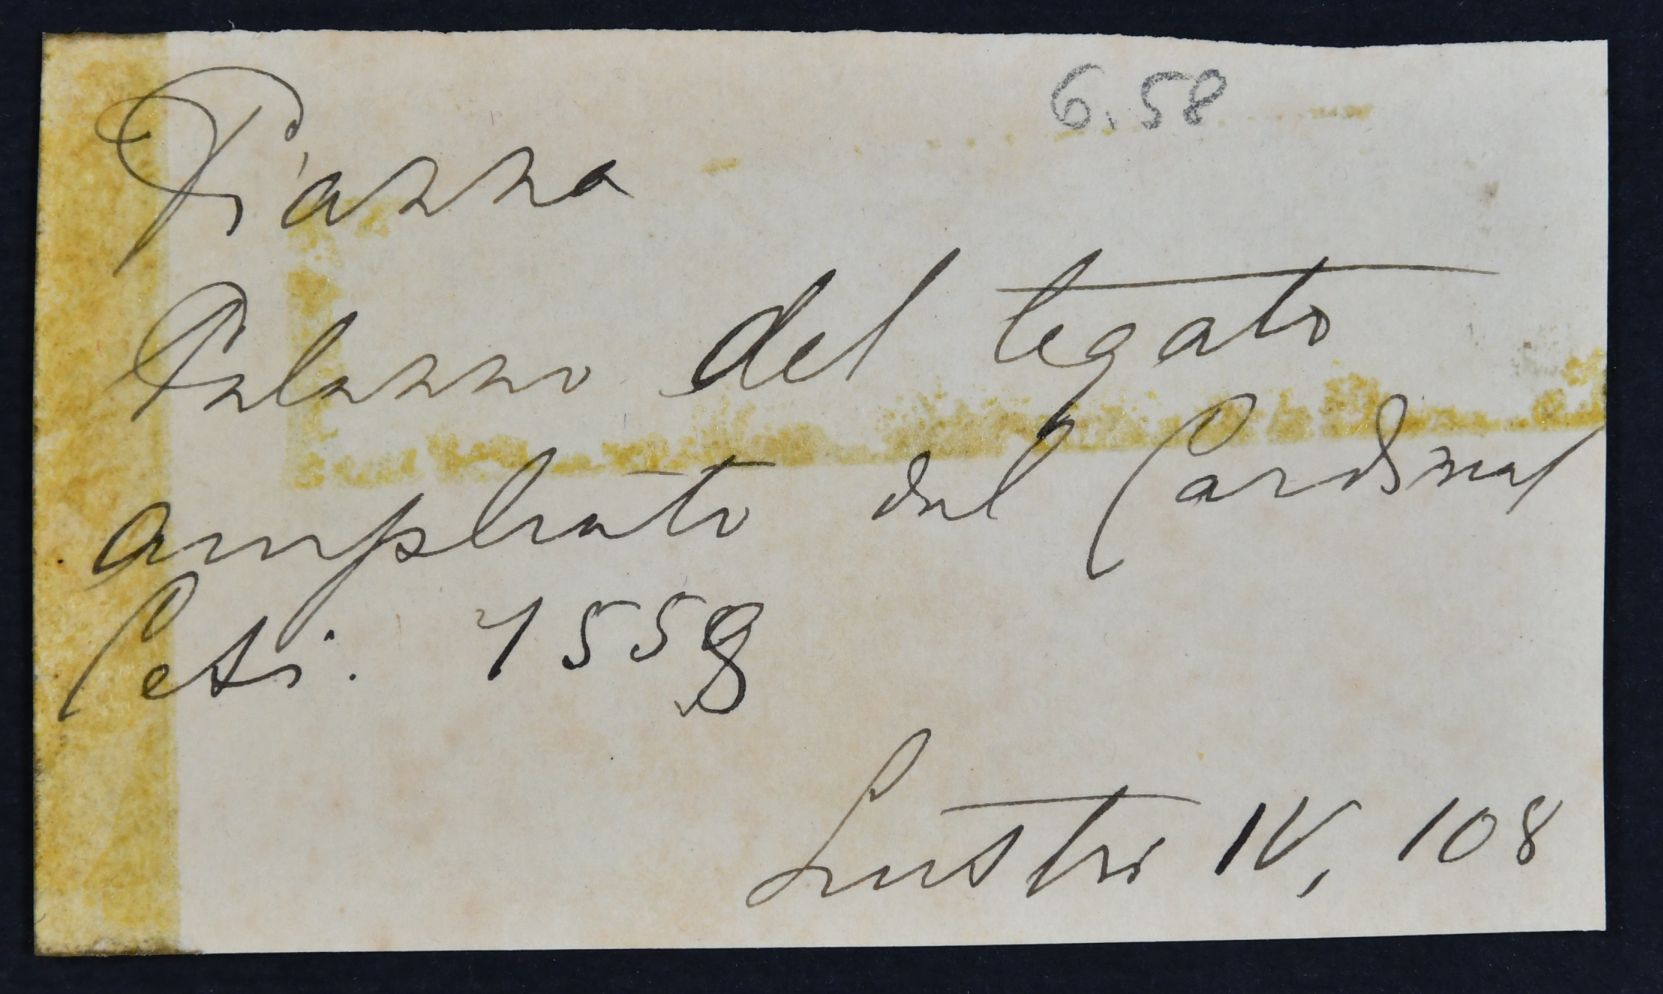 6.58
Piazza
Palazzo del legato
ampliato dal Cardinal
Cesi. 1558
Lustri IV, 108